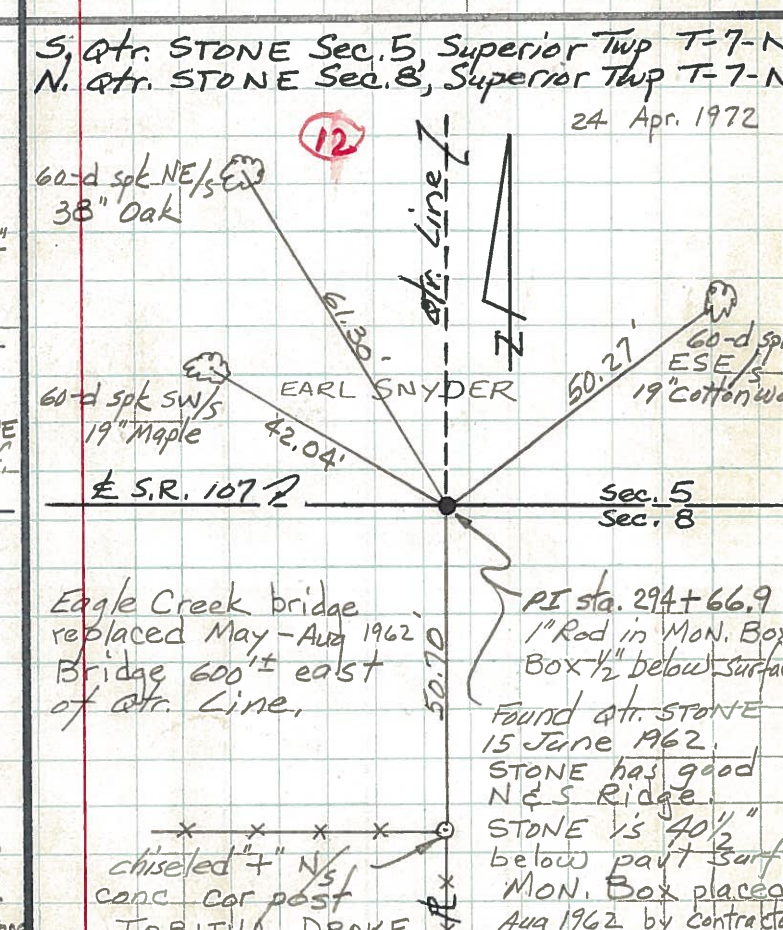 S. Qtr. STONE Sec. 5, Superior Twp T-7-N
N. Qtr. STONE Sec. 8, Superior Twp T-7-N
24 Apr. 1972
12
60-d spk NE/s
38" Oak
Qtr. Line
N
61.30'
60-d spk SW/s
19" Maple
42.04'
EARL SNYDER
50.27'
60-d sp
ESE/s
19" Cottonwo
℄ S.R. 107
Sec. 5
Sec. 8
Eagle Creek bridge
replaced May-Aug 1962
Bridge 600'± east
of Qtr. Line.
50.70
PI sta. 294+66.9
1" Rod in MON. Box
Box ½" below surfa
Found Qtr. STONE
15 June 1962.
STONE has good
N & S Ridge.
STONE is 40½"
below pav't surf
MON. Box placed
Aug 1962 by contracto
chiseled "+" N/s
conc cor post
TABITHA DRAKE